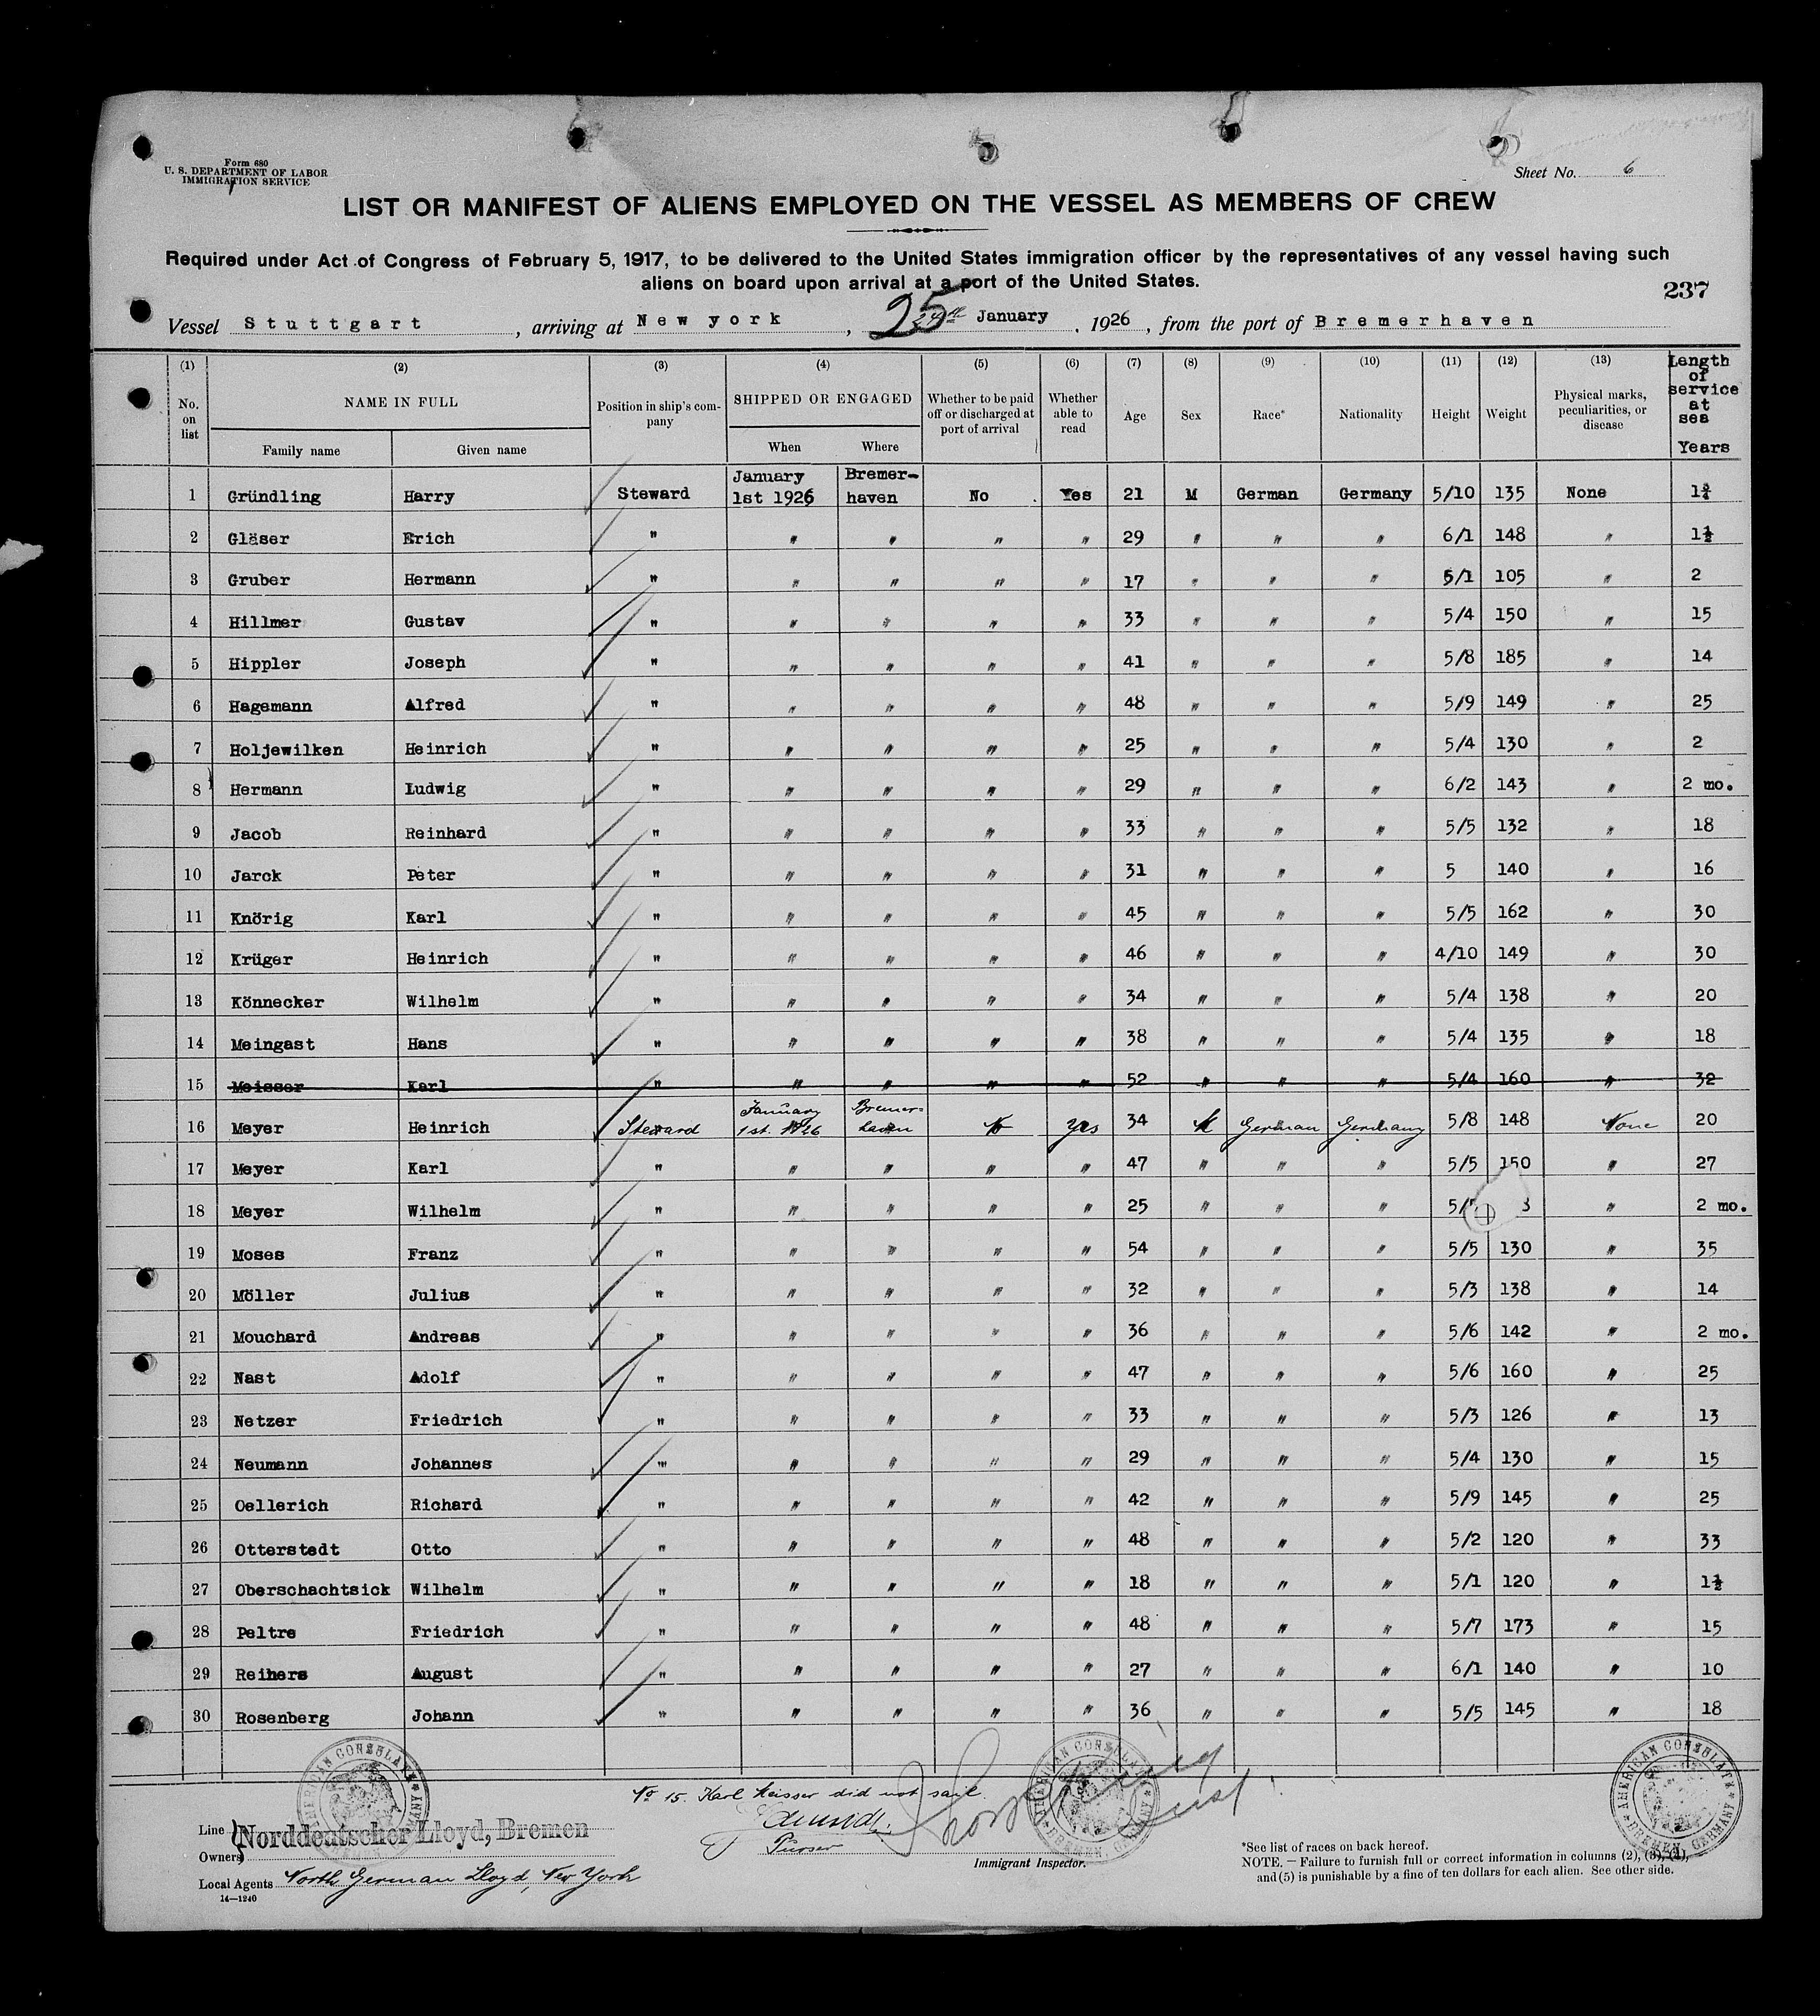 Form 680
U. S. DEPARTMENT OF LABOR
IMMIGRATION SERVICE
Sheet No. 6
LIST OR MANIFEST OF ALIENS EMPLOYED ON THE VESSEL AS MEMBERS OF CREW
Required under Act of Congress of February 5, 1917, to be delivered to the United States immigration officer by the representatives of any vessel having such
aliens on board upon arrival at a port of the United States.
237
Vessel Stuttgart , arriving at New york , 25th January , 1926 , from the port of Bremerhaven
(1) (2) (3) (4) (5) (6) (7) (8) (9) (10) (11) (12) (13) Length of service at sea Years
No. on list NAME IN FULL Family name Given name Position in ship's company SHIPPED OR ENGAGED When Where Whether to be paid off or discharged at port of arrival Whether able to read Age Sex Race* Nationality Height Weight Physical marks, peculiarities, or disease
1 Gründling Harry Steward January 1st 1926 Bremerhaven No Yes 21 M German Germany 5/10 135 None 1¾
2 Gläser Erich " " " " " 29 " " " 6/1 148 " 1½
3 Gruber Hermann " " " " " 17 " " " 5/1 105 " 2
4 Hillmer Gustav " " " " " 33 " " " 5/4 150 " 15
5 Hippler Joseph " " " " " 41 " " " 5/8 185 " 14
6 Hagemann Alfred " " " " " 48 " " " 5/9 149 " 25
7 Holjewilken Heinrich " " " " " 25 " " " 5/4 130 " 2
8 Hermann Ludwig " " " " " 29 " " " 6/2 143 " 2 mo.
9 Jacob Reinhard " " " " " 33 " " " 5/5 132 " 18
10 Jarck Peter " " " " " 31 " " " 5 140 " 16
11 Knörig Karl " " " " " 45 " " " 5/5 162 " 30
12 Krüger Heinrich " " " " " 46 " " " 4/10 149 " 30
13 Könnecker Wilhelm " " " " " 34 " " " 5/4 138 " 20
14 Meingast Hans " " " " " 38 " " " 5/4 135 " 18
15 Meisser Karl " " " " " 52 " " " 5/4 160 " 32
16 Meyer Heinrich Steward January 1st. 1926 Bremerhaven No Yes 34 M German Germany 5/8 148 None 20
17 Meyer Karl " " " " " 47 " " " 5/5 150 " 27
18 Meyer Wilhelm " " " " " 25 " " " 5/ 3 " 2 mo.
19 Moses Franz " " " " " 54 " " " 5/5 130 " 35
20 Möller Julius " " " " " 32 " " " 5/3 138 " 14
21 Mouchard Andreas " " " " " 36 " " " 5/6 142 " 2 mo.
22 Nast Adolf " " " " " 47 " " " 5/6 160 " 25
23 Netzer Friedrich " " " " " 33 " " " 5/3 126 " 13
24 Neumann Johannes " " " " " 29 " " " 5/4 130 " 15
25 Oellerich Richard " " " " " 42 " " " 5/9 145 " 25
26 Otterstedt Otto " " " " " 48 " " " 5/2 120 " 33
27 Oberschachtsick Wilhelm " " " " " 18 " " " 5/1 120 " 1½
28 Peltre Friedrich " " " " " 48 " " " 5/7 173 " 15
29 Reihers August " " " " " 27 " " " 6/1 140 " 10
30 Rosenberg Johann " " " " " 36 " " " 5/5 145 " 18
No 15. Karl Meisser did not sail.
Purser
Immigrant Inspector.
AMERICAN CONSULATE BREMEN, GERMANY
AMERICAN CONSULATE BREMEN, GERMANY
AMERICAN CONSULATE BREMEN, GERMANY
Line
Owners Norddeutscher Lloyd, Bremen
Local Agents North German Lloyd, New York
14—1240
*See list of races on back hereof.
NOTE. — Failure to furnish full or correct information in columns (2), (3), (4),
and (5) is punishable by a fine of ten dollars for each alien. See other side.